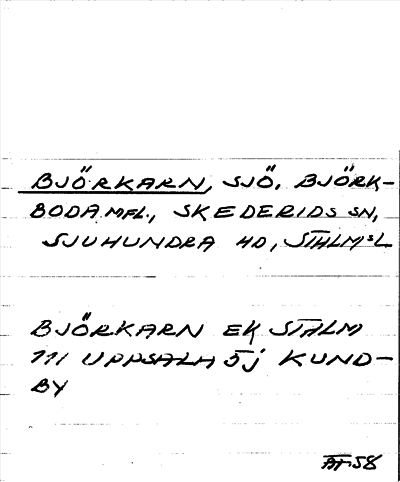 BJÖRKARN, SJÖ. BJÖRK-
BODA MFL., SKEDERIDS SN,
SJUHUNDRA HD, STHLMSL
BJÖRKARN EK STHLM
111 UPPSALA 5j KUND-
BY
AT-58